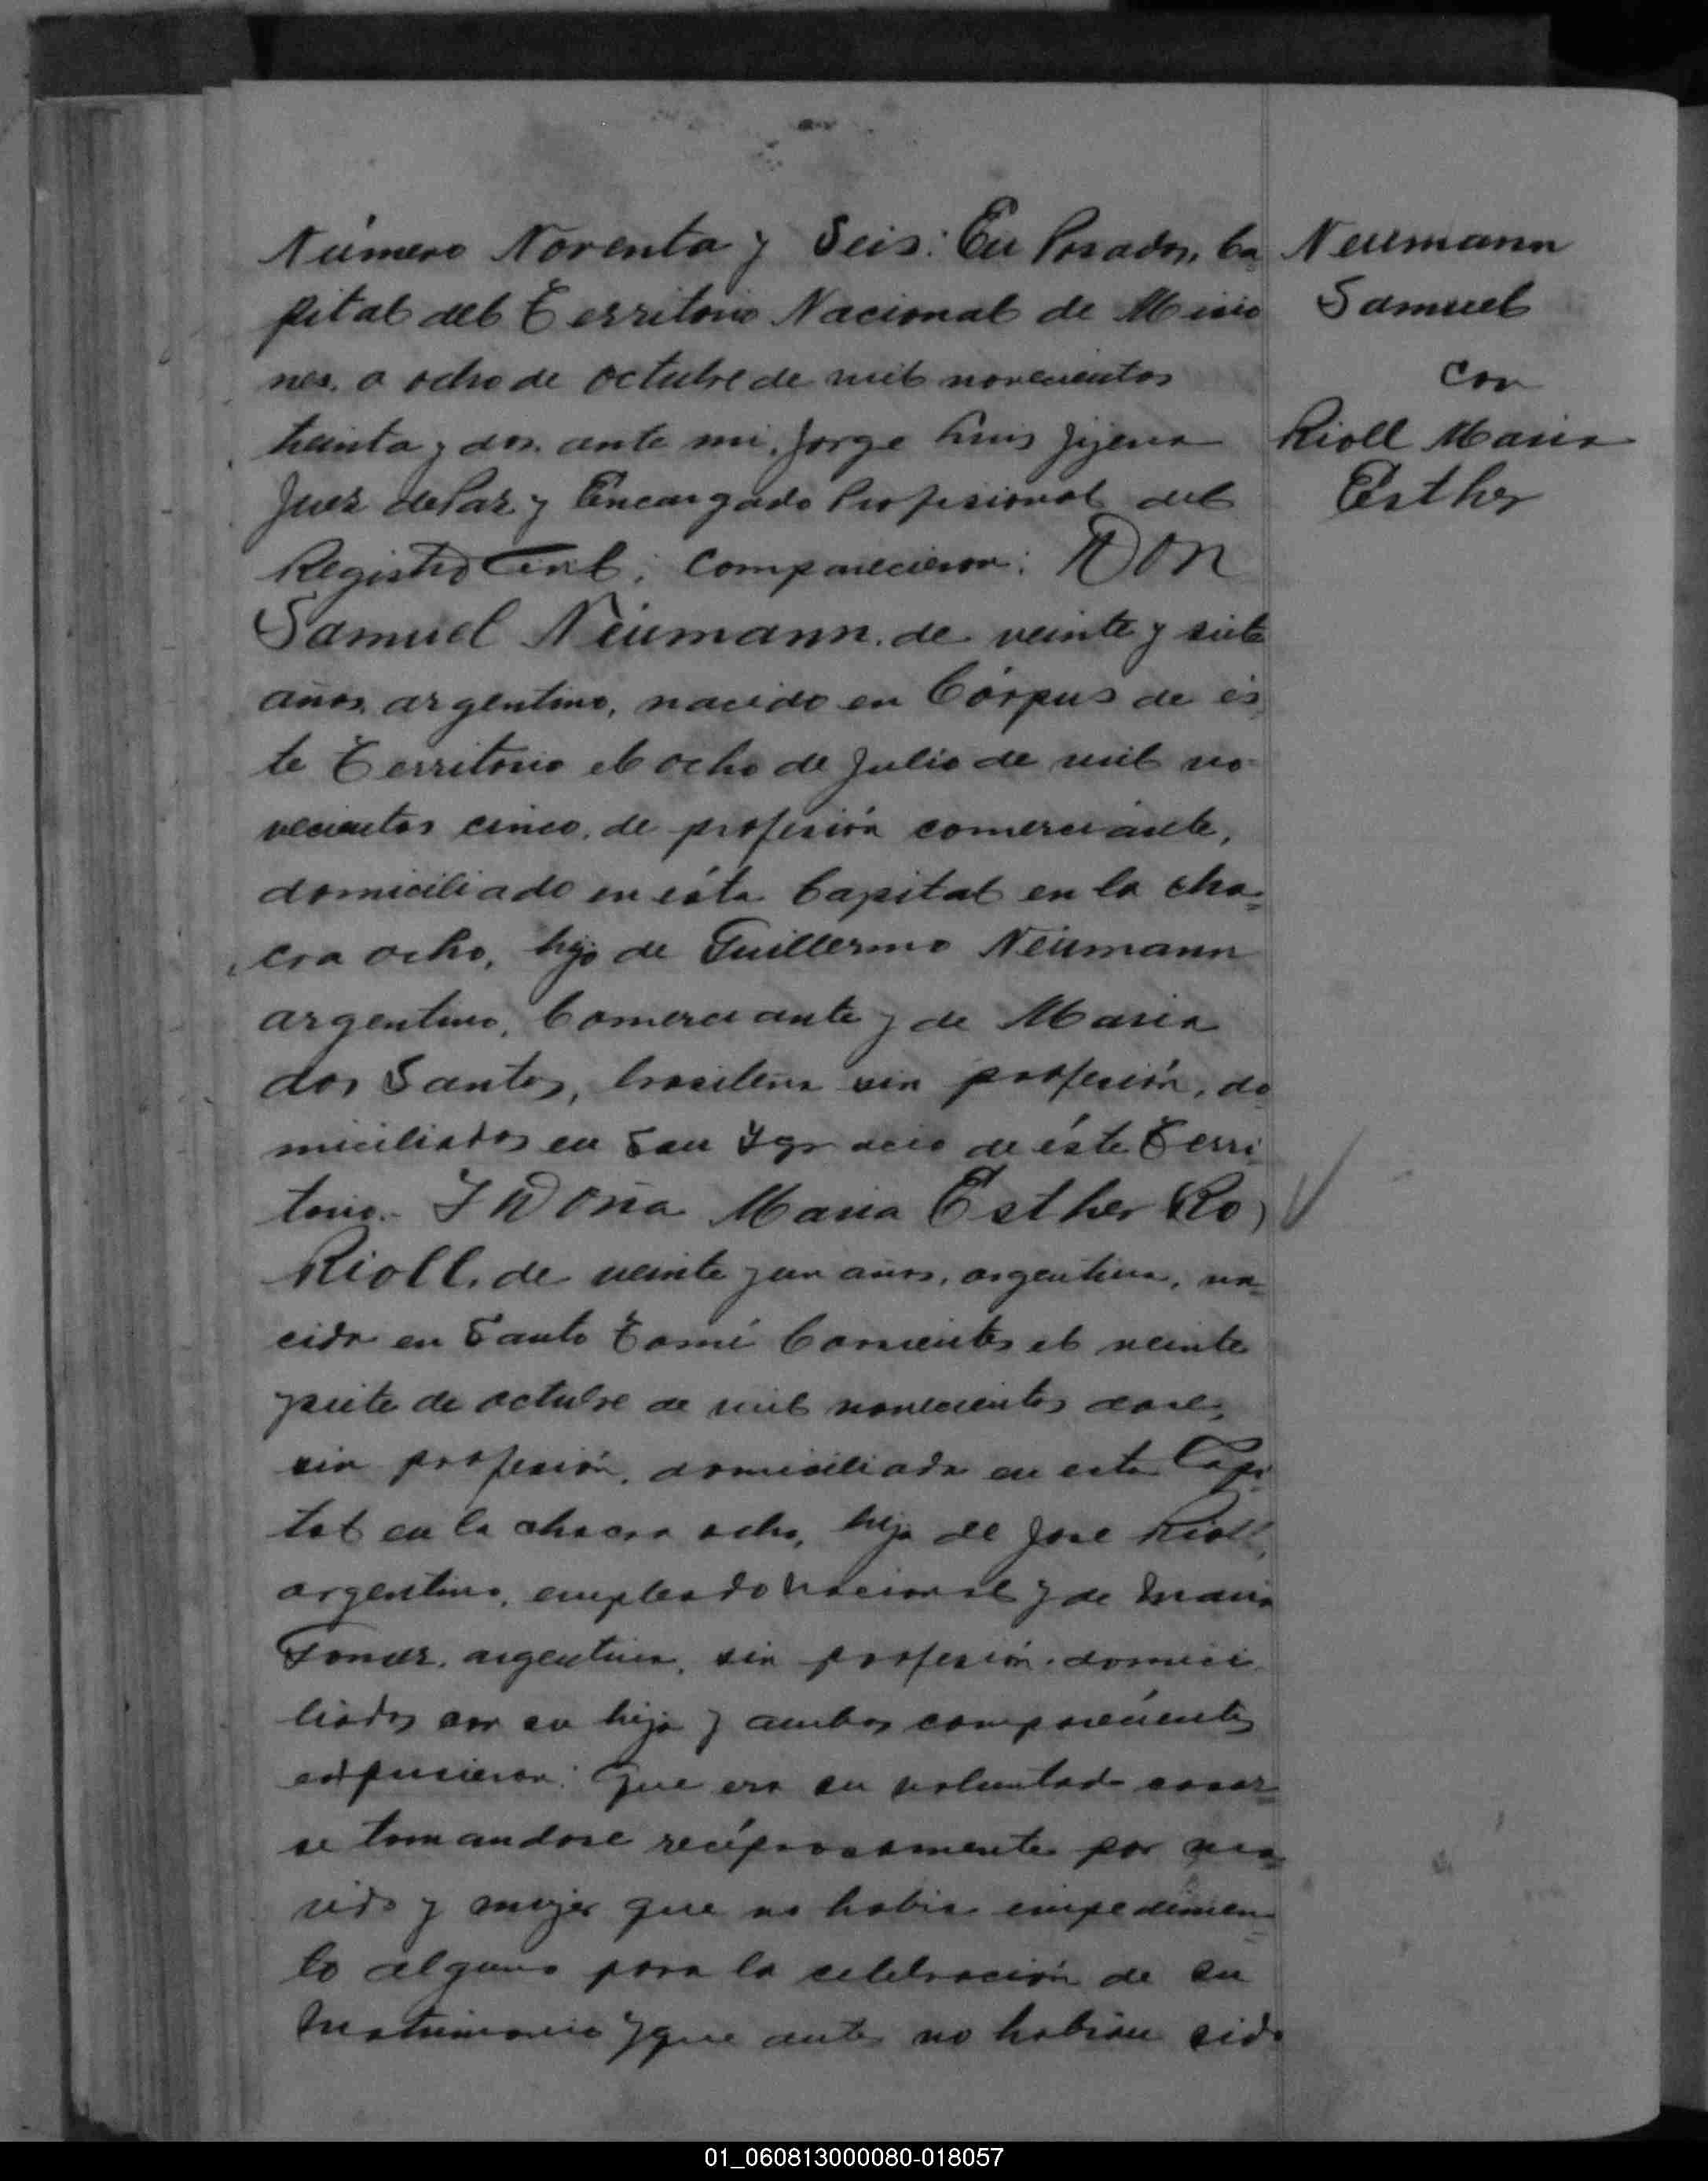 Número Noventa y Seis: En Posadas, Ca
pital del Territorio Nacional de Misio
nes, a ocho de octubre de mil novecientos
treinta y dos, ante mi, Jorge Luis Jijena
Juez de Paz y Encargado Profesional del
Registro Civil; Comparecieron: Don
Samuel Neumann, de veinte y siete
años, argentino, nacido en Córpus de és
te Territorio el ocho de Julio de mil no-
vecientos cinco, de profesión comerciante,
domiciliado en ésta Capital en la cha-
cra ocho, hijo de Guillermo Neumann
argentino, Comerciante y de Maria
dos Santos, brasileña sin profesión, do
miciliados en San Ignacio de éste Terri
torio.- Y Doña Maria Esther (Ro)
Rioll, de veinte y un años, argentina, na-
cida en Santo Tomé Corrientes el veinte
y siete de octubre de mil novecientos doce,
sin profesión, domiciliada en esta Capi-
tal en la chacra ocho, hija de Jose Rioll,
argentino, empleado nacional y de Maria
argentina, sin profesión, domici-
liados con su hija y ambos comparecientes
expusieron: Que era su voluntad casar-
se tomandose recíprocamente por ma-
rido y mujer que no habia impedimen-
to alguno para la celebración de su
Matrimonio y que antes no habian sido
Neumann
Samuel
con
Rioll Maria
Esther
01_060813000080-018057